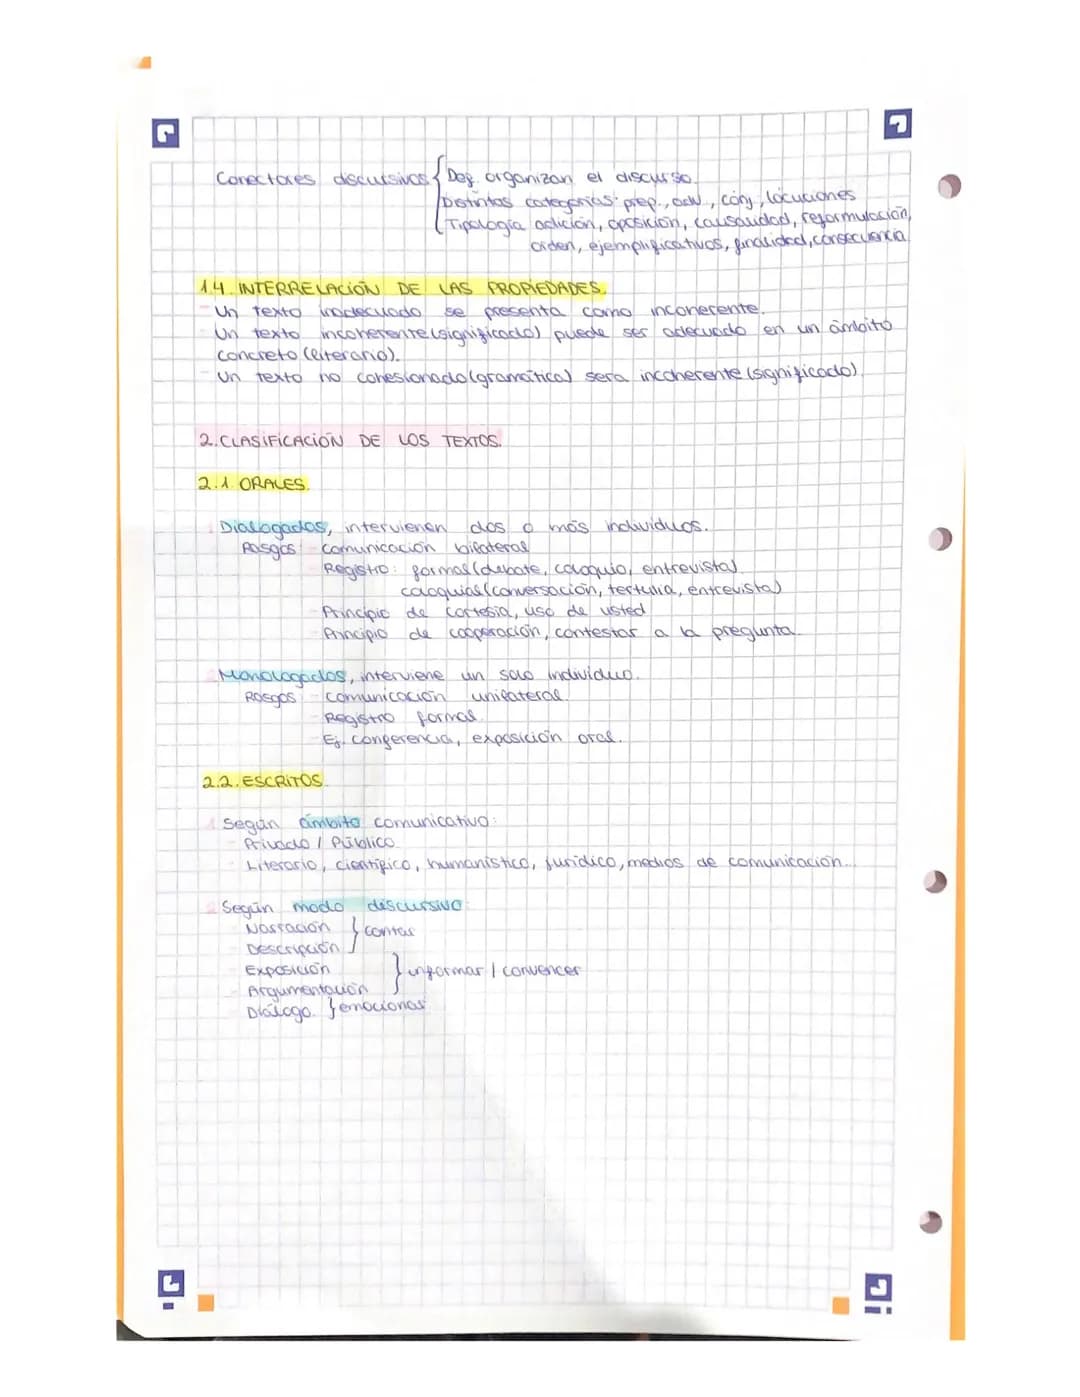 Conectores discursivos { Def. organizan el discurso.
Distintas categorías: prep., adv., conj., locuciones
Tipología adición, oposición, causalidad, reformulación,
orden, ejemplificativos, finalidad, consecuencia
1.4. INTERRELACIÓN DE LAS PROPIEDADES.
- Un texto inadecuado se presenta como incoherente.
- Un texto incoherente (significado) puede ser adecuado en un ámbito
concreto (literario).
- Un texto no cohesionado (gramática) sera incoherente (significado).
2. CLASIFICACIÓN DE LOS TEXTOS.
2.1 ORALES.
1 Dialogados, intervienen dos o más individuos.
Rasgos: - comunicación bilateral
- Registro: formal (debate, coloquio, entrevista)
coloquial (conversación, tertulia, entrevista)
- Principio de cortesía, uso de usted
- Principio de cooperación, contestar a la pregunta.
2 Monologados, interviene un solo individuo.
Rasgos - comunicación unilateral.
- Registro formal.
- Ej. conferencia, exposición oral.
2.2. ESCRITOS.
1 Según ámbito comunicativo:
- Privado / Público
- Literario, científico, humanístico, jurídico, medios de comunicación...
2 Según modo discursivo:
- Narración } contar
- Descripción
- Exposición } informar / convencer
- Argumentación
- Diálogo. } emocional